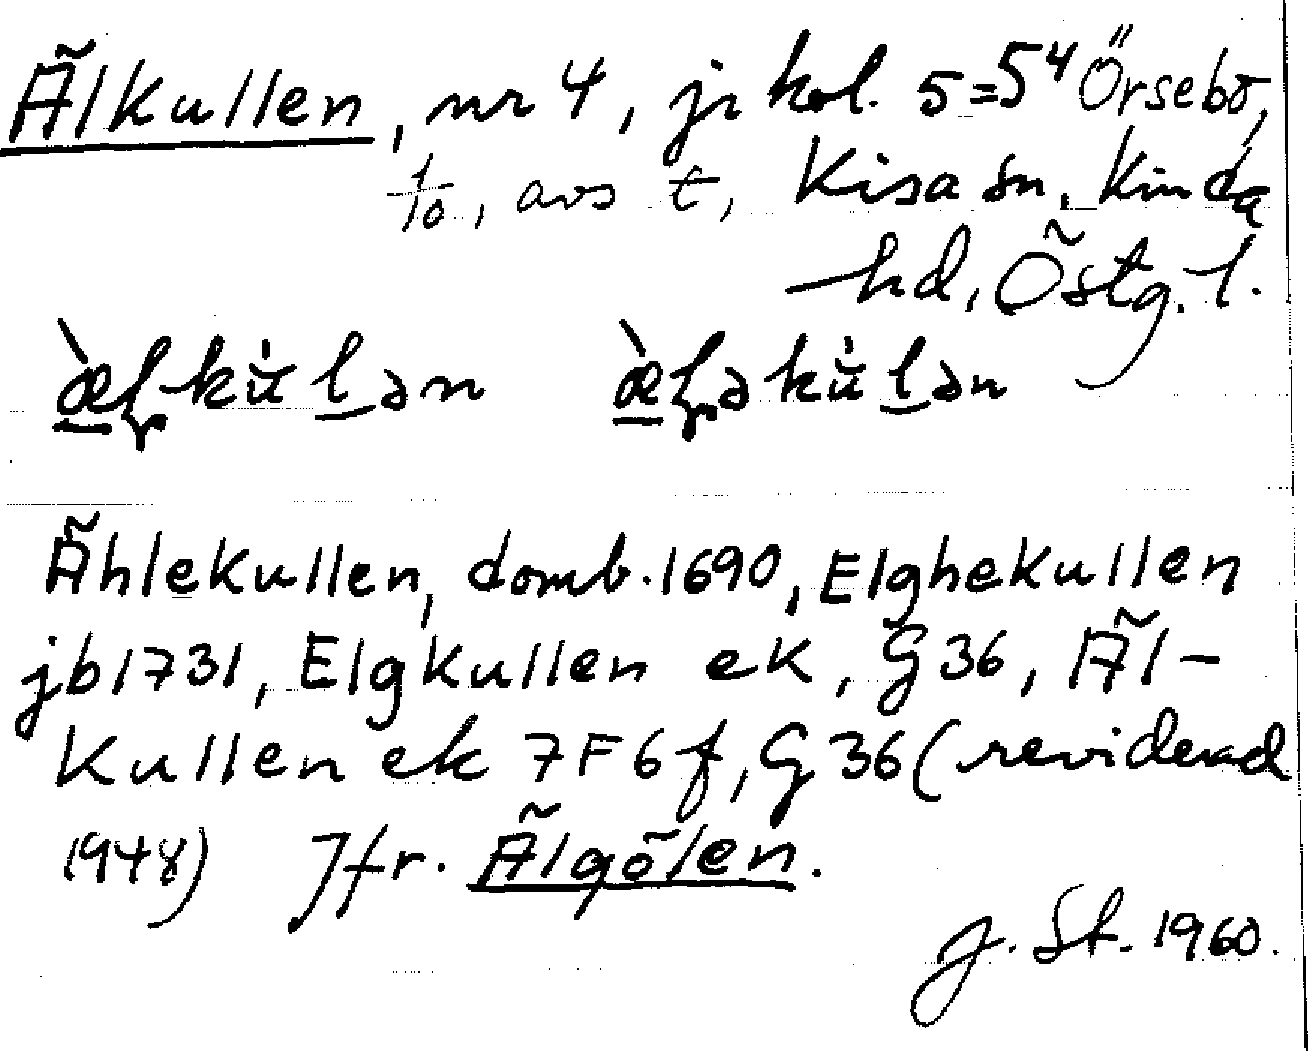 Älkullen, nr 4, jr kol. 5=5⁴ Örsebo,
1/10, avs t, Kisa sn, Kinda
hd, Östg. l.
Ählekullen, domb. 1690, Elghekullen
jb 1731, Elgkullen ek, G 36, Äl-
kullen ek 7F6f, G 36 (reviderad
1948) Jfr. Älgölen.
J. St. 1960.